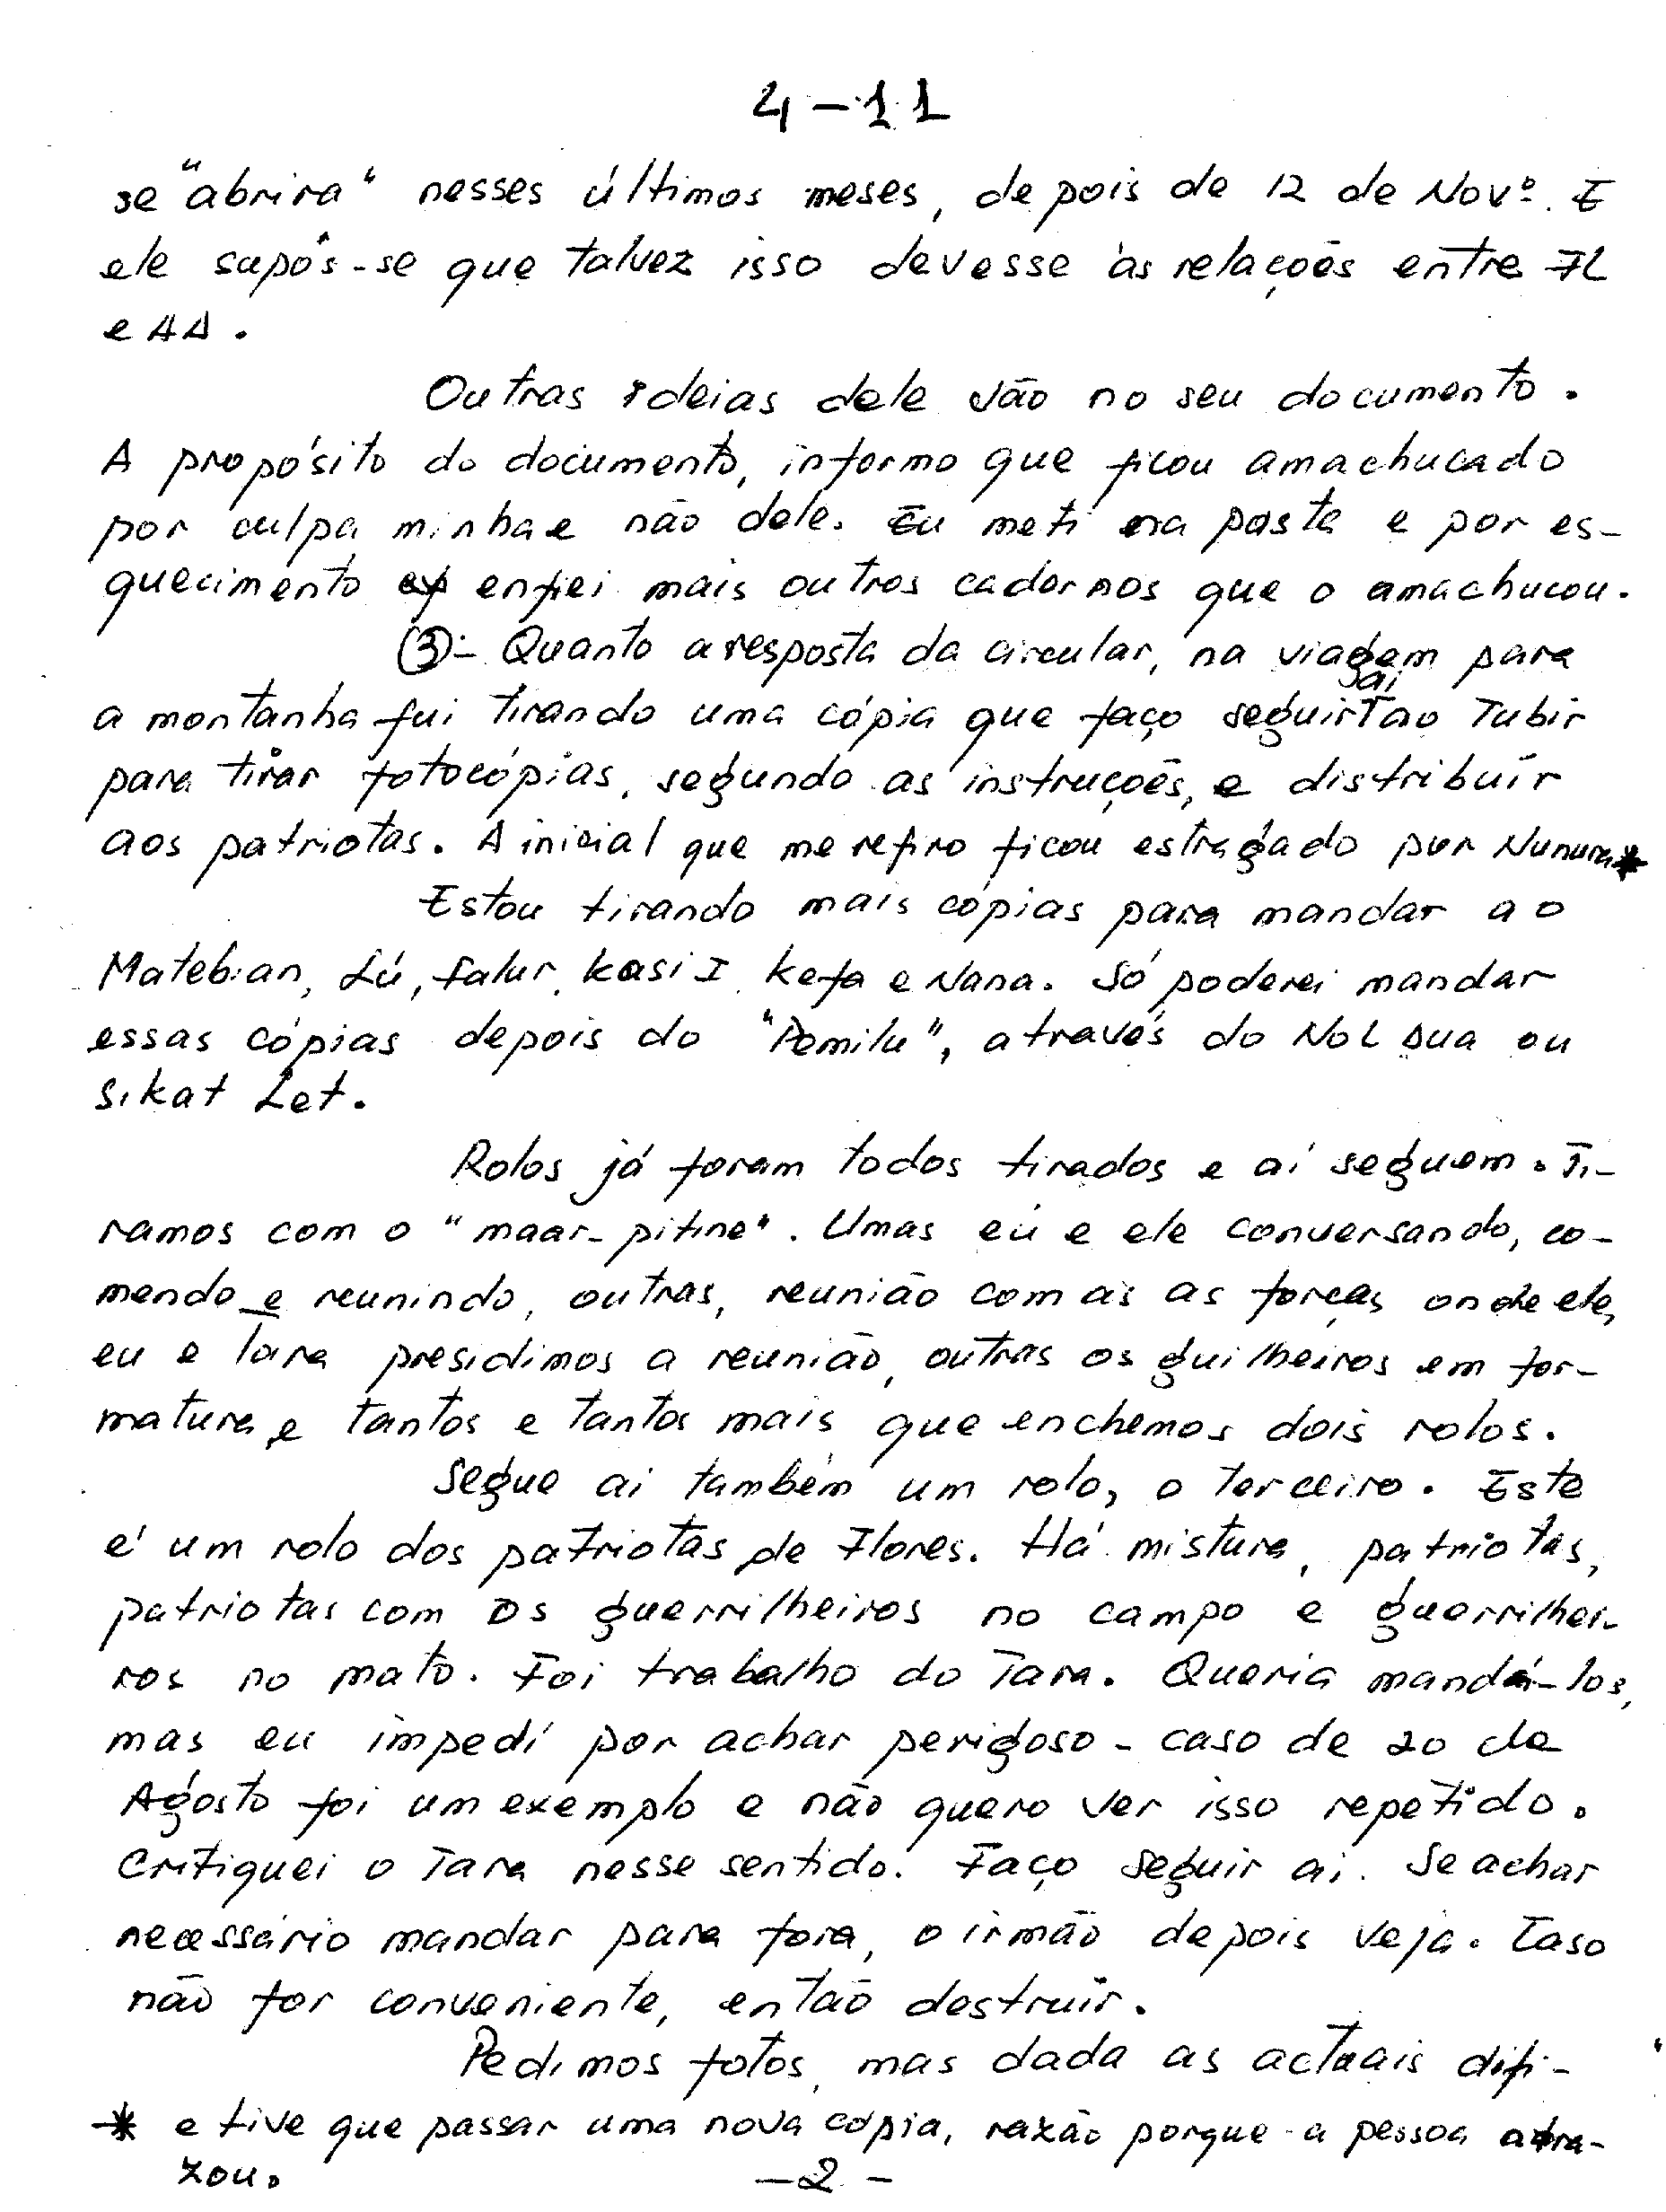 4-11
se "abrira" nesses últimos meses, depois de 12 de Novº. E
ele supôs-se que talvez isso devesse às relações entre FL
e AA.
Outras ideias dele vão no seu documento.
A propósito do documento, informo que ficou amachucado
por culpa minha e não dele. Eu meti na pasta e por es-
quecimento enfiei mais outros cadernos que o amachucou.
(3)- Quanto a resposta da circular, na viagem para
a montanha fui tirando uma cópia que faço seguir aí ao Tubir
para tirar fotocópias, segundo as instruções, e distribuir
aos patriotas. A inicial que me refiro ficou estragado por Nunura*
Estou tirando mais cópias para mandar ao
Matebian, Lú, Falur, Kasi I, Kefa e Nana. Só poderei mandar
essas cópias depois do "Pemilu", através do Nol Dua ou
Sikat Let.
Rolos já foram todos tirados e aí seguem. Ti-
ramos com o "maar-pitine". Umas eu e ele conversando, co-
mendo e reunindo, outras, reunião com as as forças onde ele,
eu e Tara presidimos a reunião, outras os guilheiros em for-
matura, e tantos e tantos mais que enchemos dois rolos.
Segue aí também um rolo, o terceiro. Este
é um rolo dos patriotas de Flores. Há mistura, patriotas,
patriotas com os guerrilheiros no campo e guerrilhei-
ros no mato. Foi trabalho do Tara. Queria mandá-los,
mas eu impedí por achar perigoso - caso de 20 de
Agosto foi um exemplo e não quero ver isso repetido.
Critiquei o Tara nesse sentido. Faço seguir aí. Se achar
necessário mandar para fora, o irmão depois veja. Caso
não for conveniente, então destruir.
Pedimos fotos, mas dada as actuais difi-
* e tive que passar uma nova cópia, razão porque a pessoa atra-
zou.
-2-